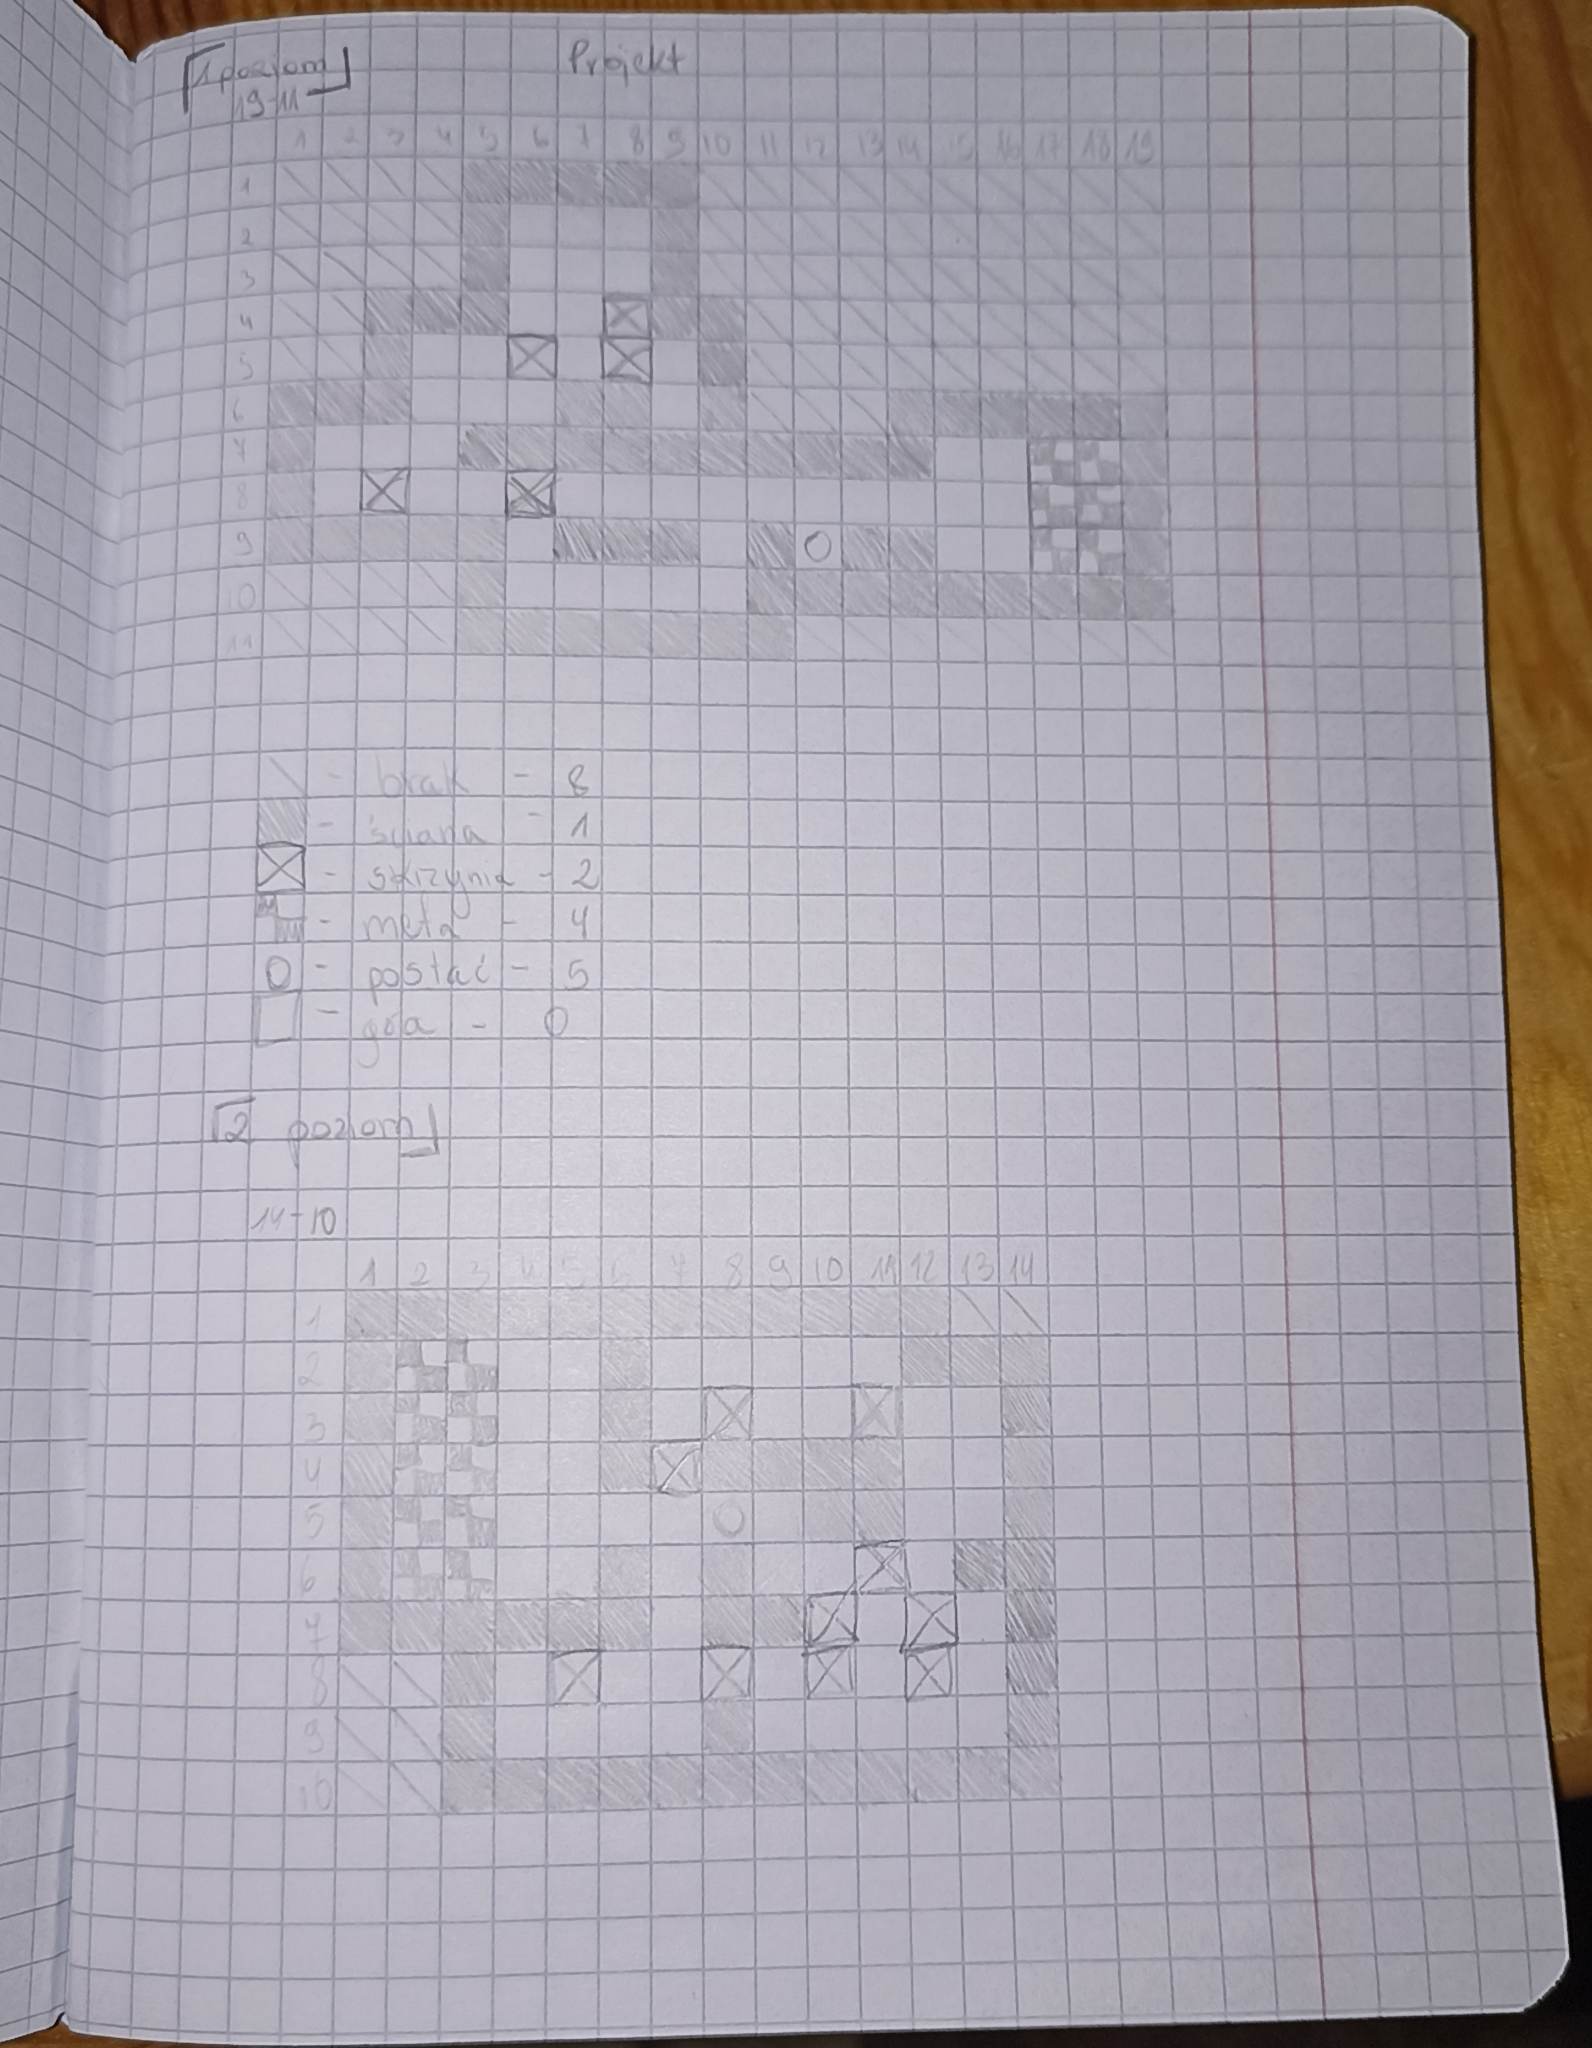 1 poziom
Projekt
19-11
1 2 3 4 5 6 7 8 9 10 11 12 13 14 15 16 17 18 19
1
2
3
4
5
6
7
8
9
10
11
- brak - 8
- ściana - 1
- skrzynia - 2
- meta - 4
O - postać - 5
- - 0
2 poziom
14-10
1 2 3 4 5 6 7 8 9 10 11 12 13 14
1
2
3
4
5
6
7
8
9
10